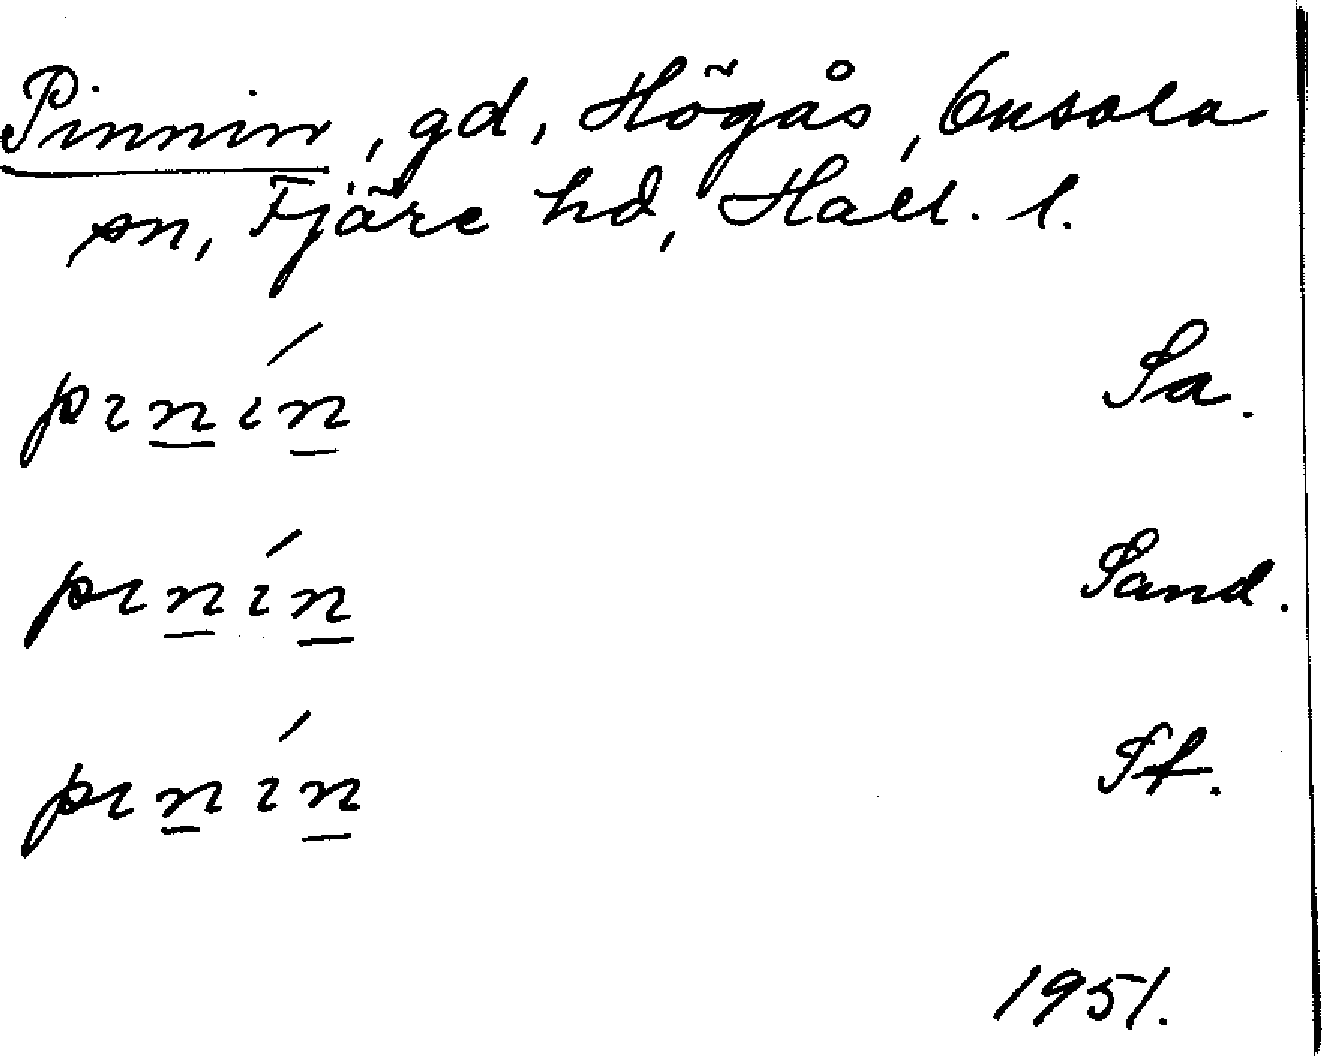 Pinnin, gd, Högås, Onsala
sn, Fjäre hd, Hall. l.
pɪn̲ɪ́n̲ Sa.
pɪn̲ɪ́n̲ Sand.
pɪn̲ɪ́n̲ St.
1951.